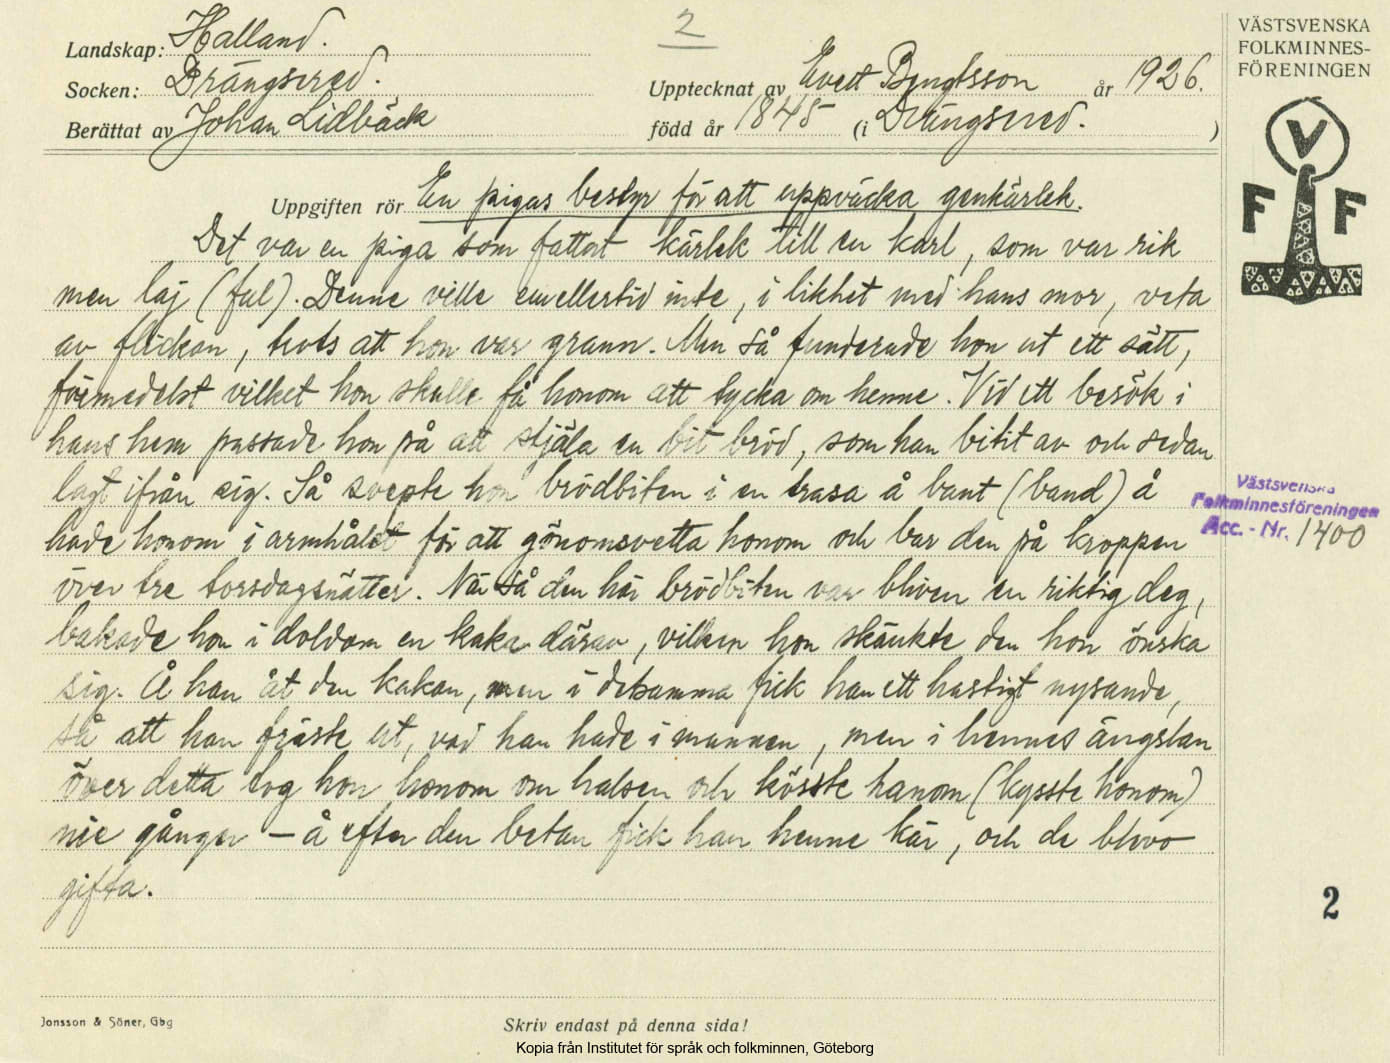 2
Landskap: Halland.
Socken: Drängsered.
Upptecknat av Evert Bengtsson år 1926.
Berättat av Johan Lidbäck
född år 1845 (i Drängsered. )
VÄSTSVENSKA
FOLKMINNES-
FÖRENINGEN
V
F F
Uppgiften rör En pigas bestyr för att uppväcka genkärlek.
Det var en piga som fattat kärlek till en karl, som var rik
men laj (ful). Denne ville emellertid inte, i likhet med hans mor, veta
av flickan, trots att hon var grann. Men så funderade hon ut ett sätt,
förmedelst vilket hon skulle få honom att tycka om henne. Vid ett besök i
hans hem passade hon på att stjäla en bit bröd, som han bitit av och sedan
lagt ifrån sig. Så svepte hon brödbiten i en trasa å bant (band) å
hade honom i armhålet för att gönomsvetta honom och bar den på kroppen
över tre torsdagsnätter. När så den här brödbiten var bliven en riktig deg,
bakade hon i doldom en kaka därav, vilken hon skänkte den hon önska
sig. Å han åt den kakan, men i detsamma fick han ett hastigt nysande,
så att han fräste ut, vad han hade i munnen, men i hennes ängslan
över detta tog hon honom om halsen och kösste hanom (kysste honom)
nie gånger – å efter den betan fick han henne kär, och de blevo
gifta.
Västsvenska
Folkminnesföreningen
Acc. - Nr. 1400
2
Jonsson & Söner, Gbg
Skriv endast på denna sida!
Kopia från Institutet för språk och folkminnen, Göteborg